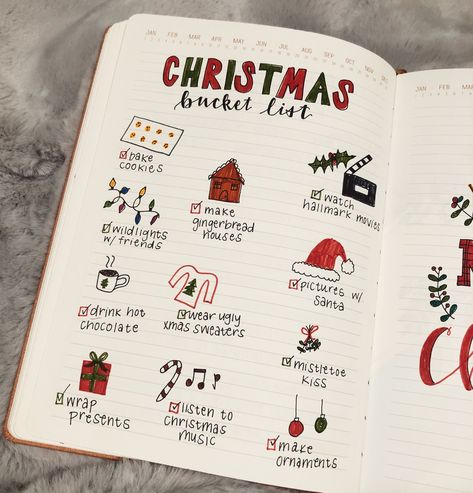 JAN FEB MAR APR MAY JUN JUL AUG SEP OCT NOV DEC
CHRISTMAS
bucket list
bake
cookies
make
gingerbread
houses
watch
hallmark movies
wildlights
w/ friends
pictures w/
santa
drink hot
chocolate
wear ugly
xmas sweaters
mistletoe
kiss
wrap
presents
listen to
christmas
music
make
ornaments
JAN FEB MAR